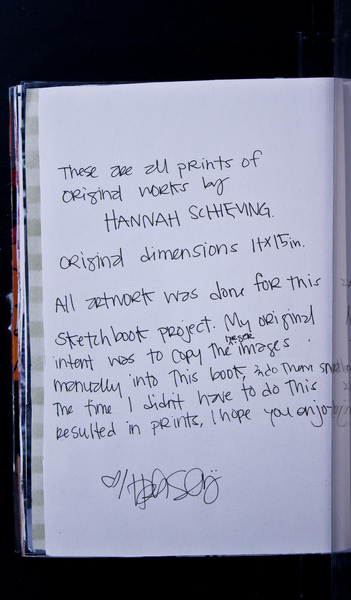 These are all prints of
original works by
HANNAH SCHIEVING.
original dimensions 11x15in.
All artwork was done for this
sketchbook project. My original
intent was to copy the larger images
manually into this book, & do them
The time I didn't have to do this
resulted in prints, I hope you enjoy